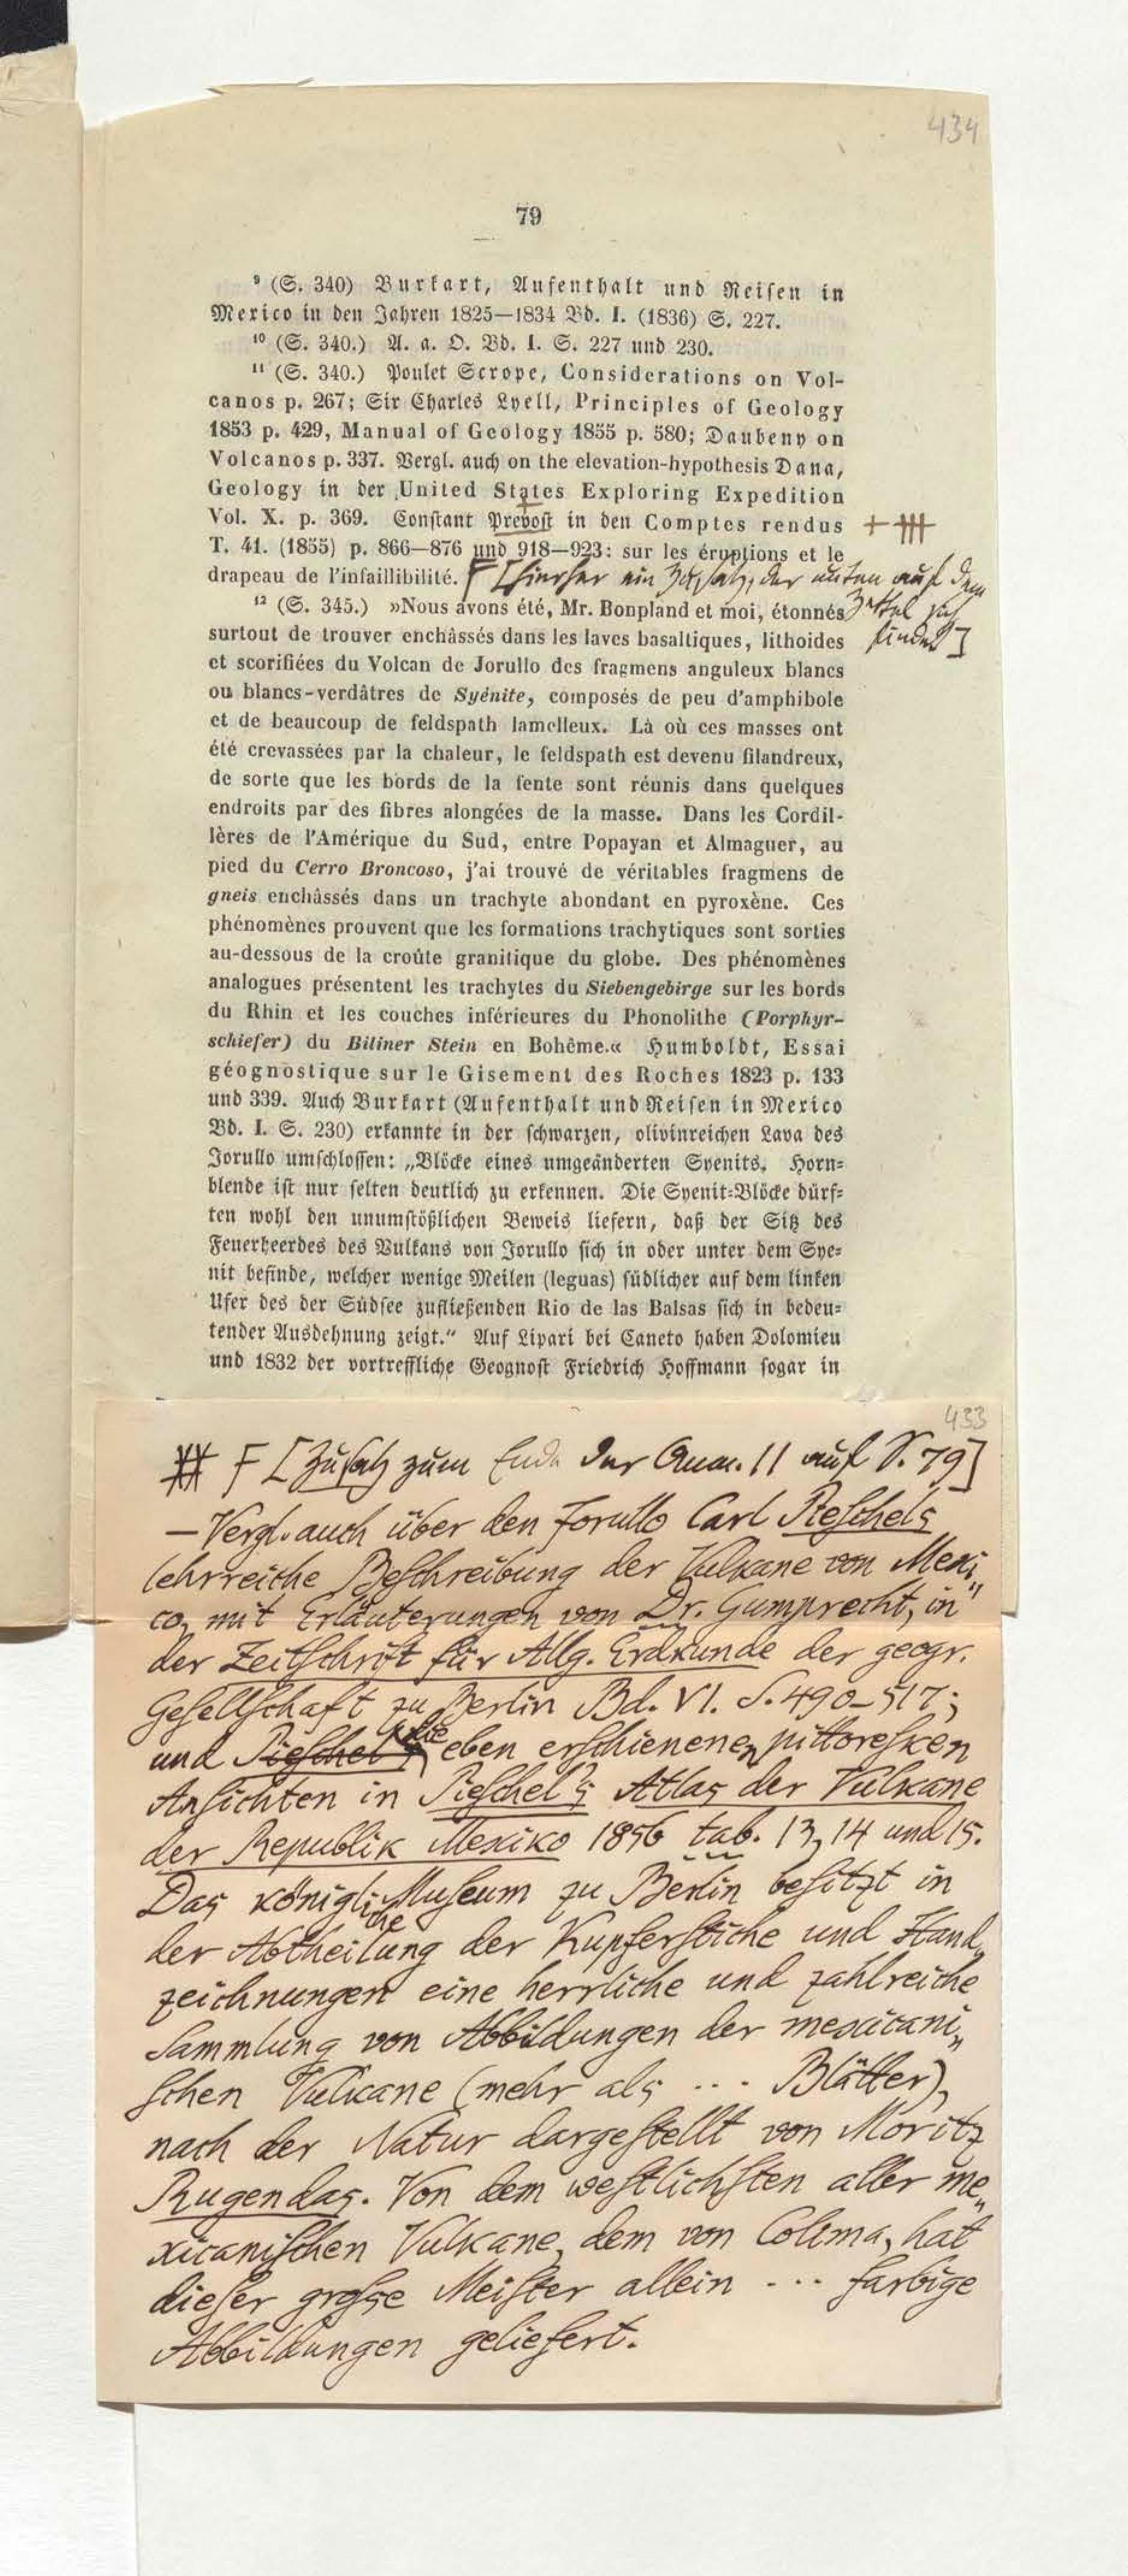 434
79
⁹ (S. 340) Burkart, Aufenthalt und Reisen in
Mexico in den Jahren 1825—1834 Bd. I. (1836) S. 227.
¹⁰ (S. 340.) A. a. O. Bd. I. S. 227 und 230.
¹¹ (S. 340.) Poulet Scrope, Considerations on Vol-
canos p. 267; Sir Charles Lyell, Principles of Geology
1853 p. 429, Manual of Geology 1855 p. 580; Daubeny on
Volcanos p. 337. Vergl. auch on the elevation-hypothesis Dana,
Geology in der United States Exploring Expedition
Vol. X. p. 369. Constant Prevost in den Comptes rendus
T. 41. (1855) p. 866—876 und 918—923: sur les éruptions et le
drapeau de l'infaillibilité. [hierher ein Zusatz, der unten auf dem
Zettel sich
findet]
¹² (S. 345.) »Nous avons été, Mr. Bonpland et moi, étonnés
surtout de trouver enchâssés dans les laves basaltiques, lithoides
et scorifiées du Volcan de Jorullo des fragmens anguleux blancs
ou blancs-verdâtres de Syénite, composés de peu d'amphibole
et de beaucoup de feldspath lamelleux. Là où ces masses ont
été crevassées par la chaleur, le feldspath est devenu filandreux,
de sorte que les bords de la fente sont réunis dans quelques
endroits par des fibres alongées de la masse. Dans les Cordil-
lères de l'Amérique du Sud, entre Popayan et Almaguer, au
pied du Cerro Broncoso, j'ai trouvé de véritables fragmens de
gneis enchâssés dans un trachyte abondant en pyroxène. Ces
phénomènes prouvent que les formations trachytiques sont sorties
au-dessous de la croûte granitique du globe. Des phénomènes
analogues présentent les trachytes du Siebengebirge sur les bords
du Rhin et les couches inférieures du Phonolithe (Porphyr-
schiefer) du Biliner Stein en Bohême.« Humboldt, Essai
géognostique sur le Gisement des Roches 1823 p. 133
und 339. Auch Burkart (Aufenthalt und Reisen in Mexico
Bd. I. S. 230) erkannte in der schwarzen, olivinreichen Lava des
Jorullo umschlossen: „Blöcke eines umgeänderten Syenits. Horn-
blende ist nur selten deutlich zu erkennen. Die Syenit-Blöcke dürf-
ten wohl den unumstößlichen Beweis liefern, daß der Sitz des
Feuerheerdes des Vulkans von Jorullo sich in oder unter dem Sye-
nit befinde, welcher wenige Meilen (leguas) südlicher auf dem linken
Ufer des der Südsee zufließenden Rio de las Balsas sich in bedeu-
tender Ausdehnung zeigt." Auf Lipari bei Caneto haben Dolomieu
und 1832 der vortreffliche Geognost Friedrich Hoffmann sogar in
433
[Zusatz zum Ende der Anm. 11 auf S. 79]
— Vergl. auch über den Jorullo Carl Pieschels
lehrreiche Beschreibung der Vulkane von Mexi„
co, mit Erläuterungen von Dr. Gumprecht, in
der Zeitschrift für Allg. Erdkunde der geogr.
Gesellschaft zu Berlin Bd. VI. S. 490–517;
und Pieschel's die eben erschienenen pittoresken
Ansichten in Pieschel's Atlas der Vulkane
der Republik Mexiko 1856 tab. 13, 14 und 15.
Das königliche Museum zu Berlin besitzt in
der Abtheilung der Kupferstiche und Hand„
zeichnungen eine herrliche und zahlreiche
Sammlung von Abbildungen der mexicani„
schen Vulkane (mehr als ... Blätter),
nach der Natur dargestellt von Moritz
Rugendas. Von dem westlichsten aller me„
xicanischen Vulkane, dem von Colima, hat
dieser grosse Meister allein ... farbige
Abbildungen geliefert.